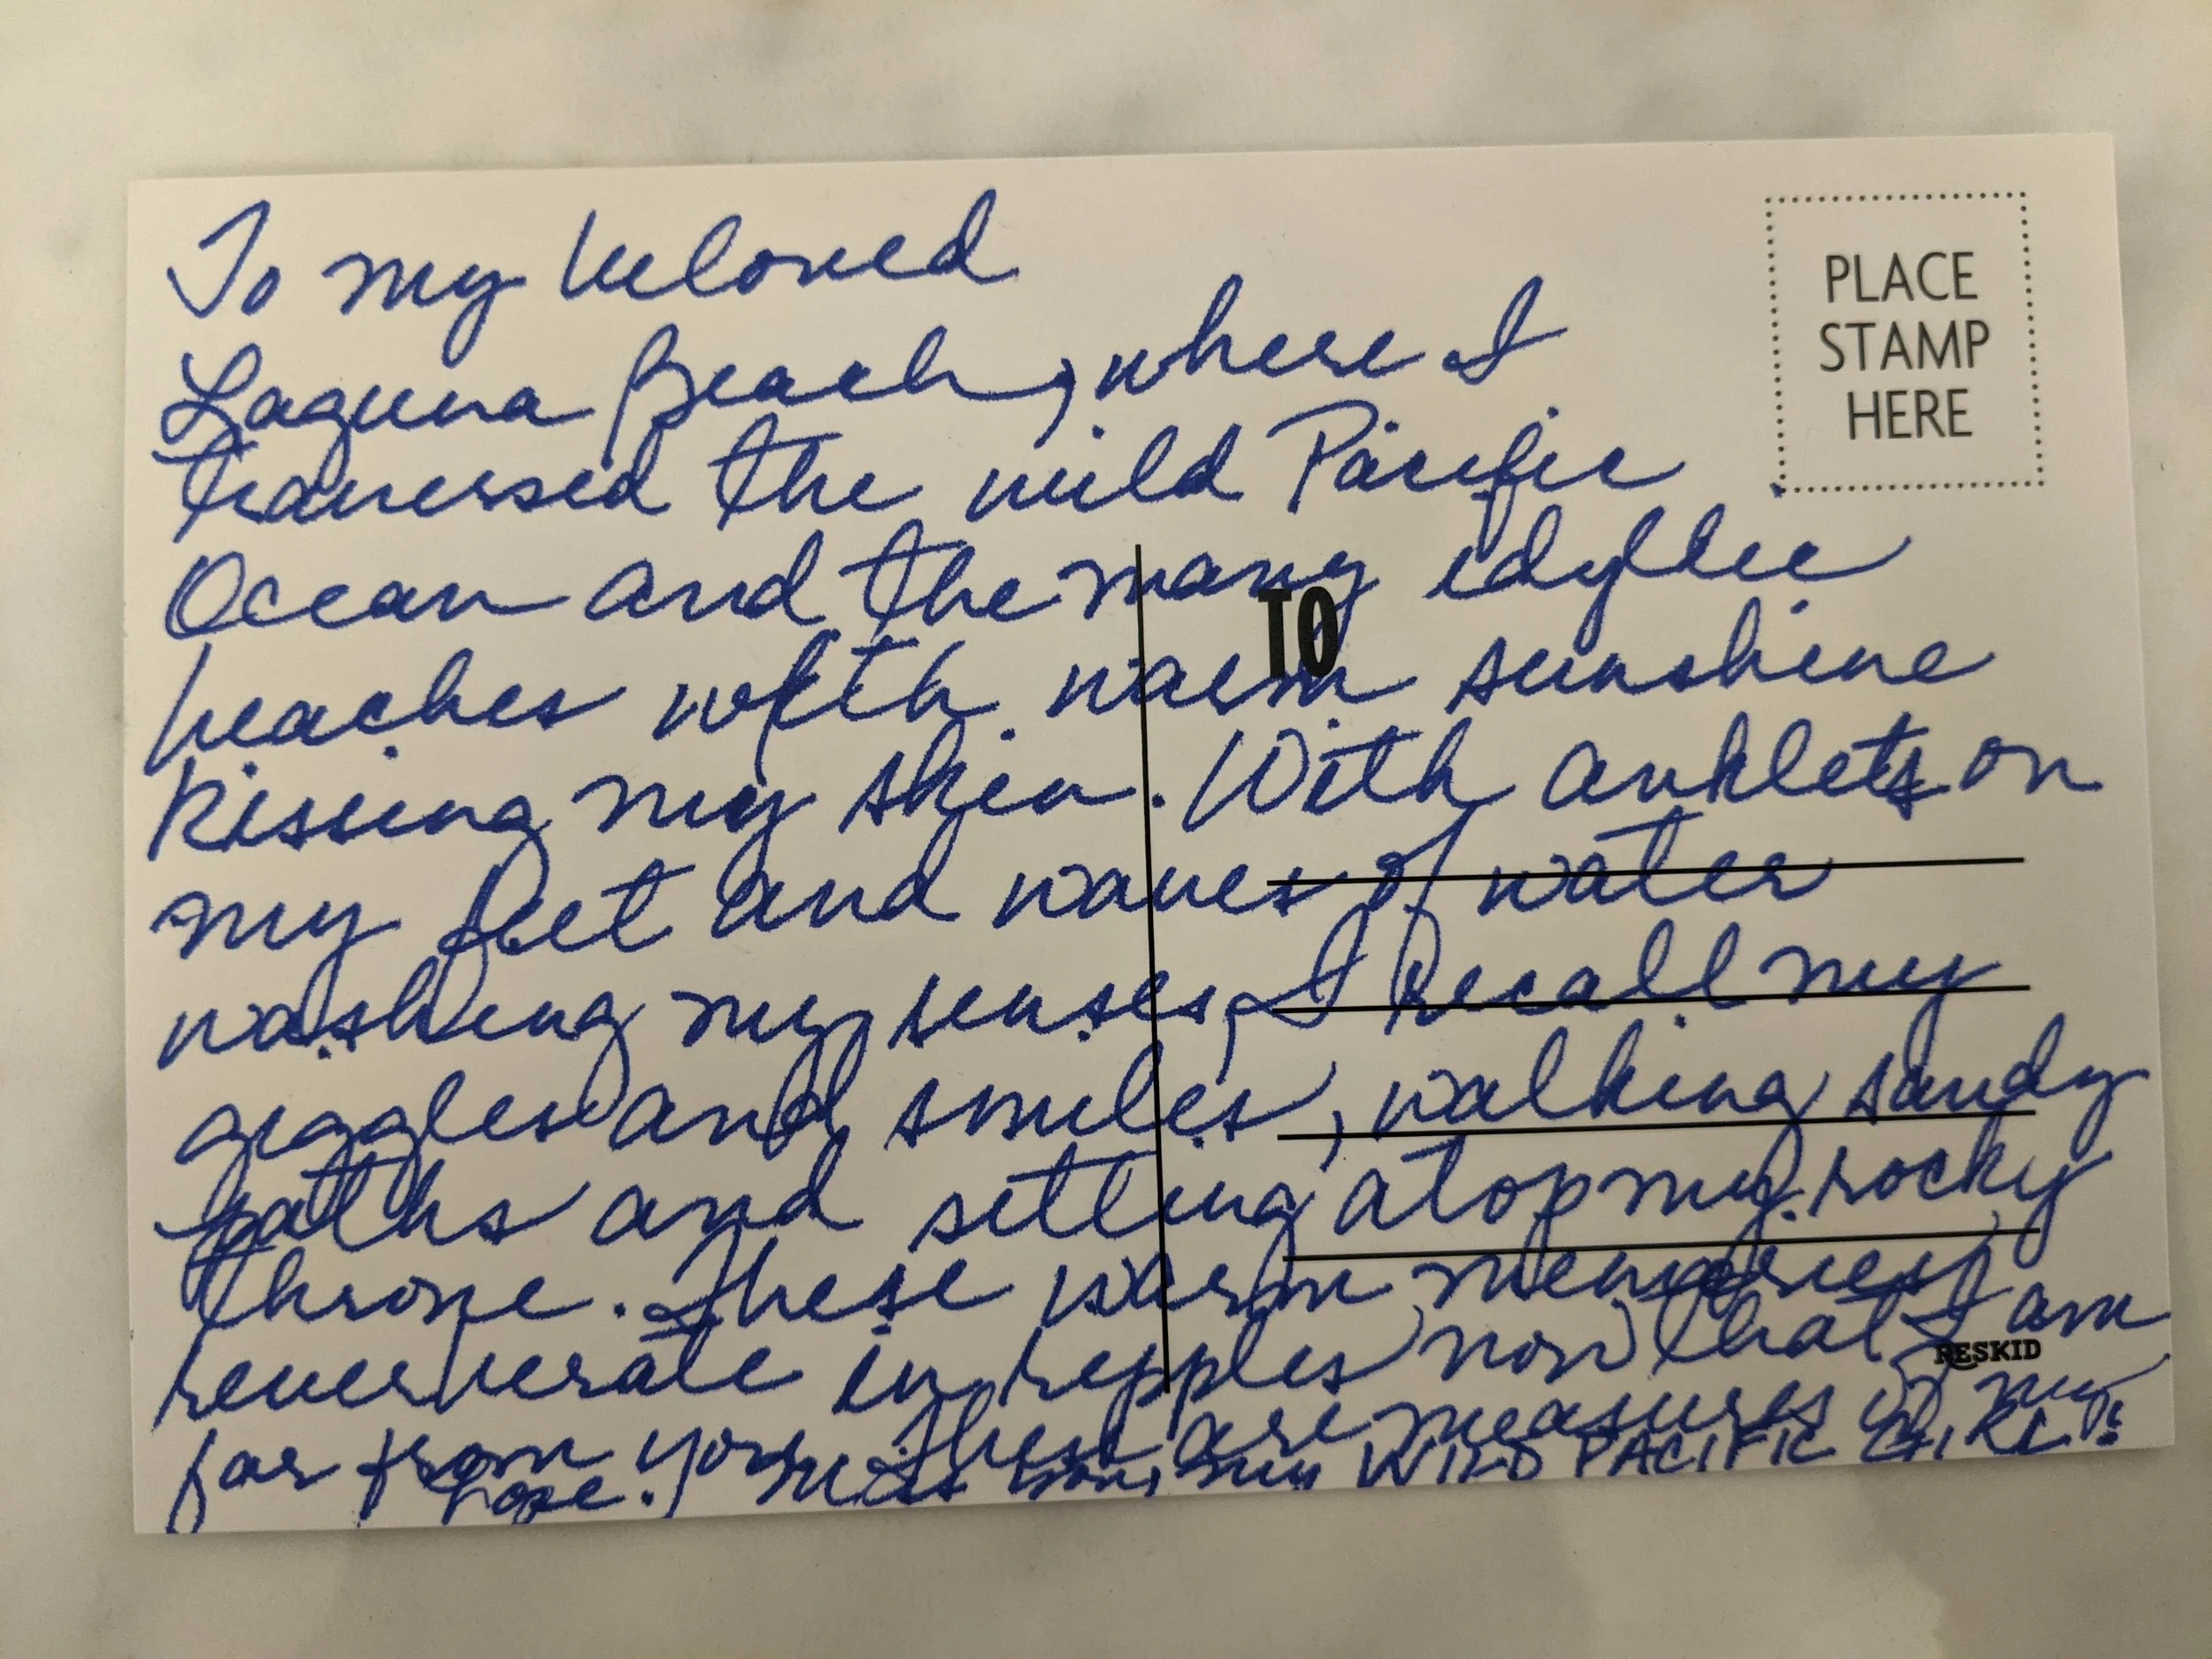 To my beloved
Laguna Beach, where I
traversed the wild Pacific
Ocean and the many idyllic
beaches with warm sunshine
kissing my skin. With anklets on
my feet and waves of water
washing my senses, I recall my
giggles and smiles, walking sandy
paths and sitting atop my rocky
throne. These warm memories
reverberate in ripples now that I am
far from you. These are measures of my
hope. miss you, my WILD PACIFIC GIRL!
PLACE
STAMP
HERE
TO
RESKID